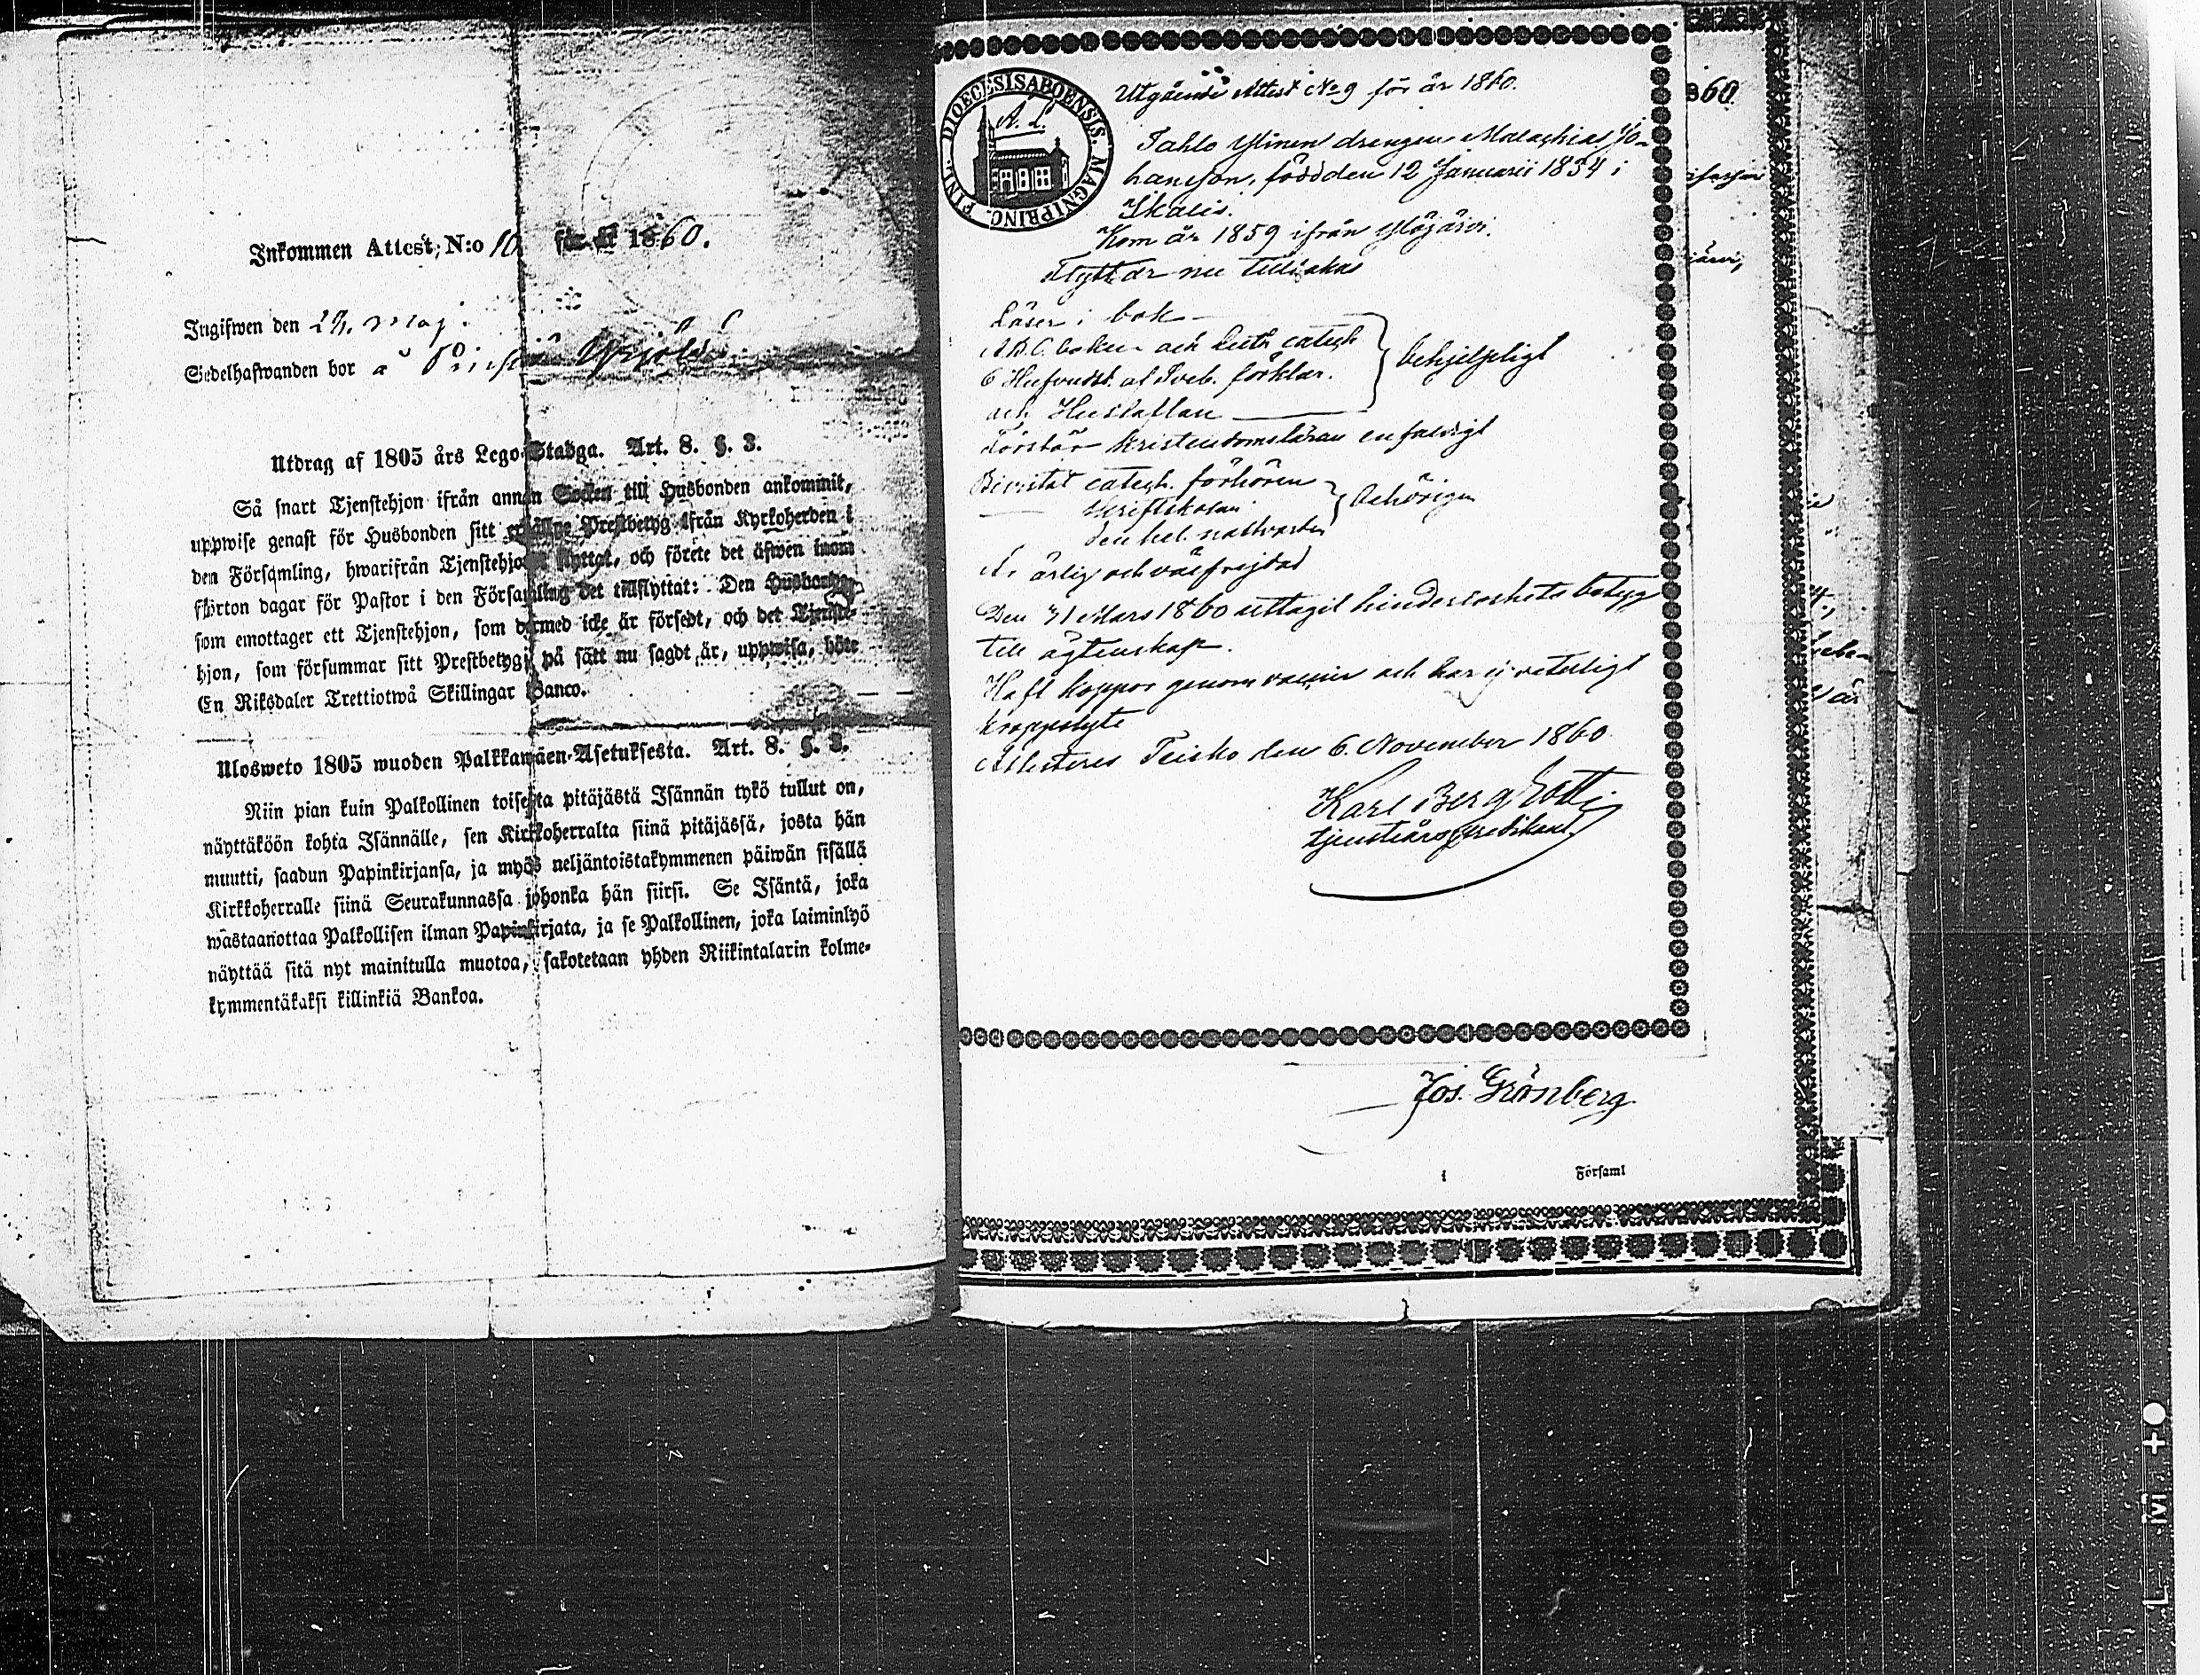 Inkommen Attest, N:o 10 för år 1860.
Ingifwen den Maj.
Sedelhafwanden bor å
Utdrag af 1805 års Lego-Stadga. Art. 8. §. 3.
Så snart Tjenstehjon ifrån annan Socken till Husbonden ankommit,
uppwise genast för Husbonden sitt erhållne Prestbetyg ifrån Kyrkoherden i
den Församling, hwarifrån Tjenstehjonet flyttat, och förete det äfwen inom
fjorton dagar för Pastor i den Församling det tillflyttat: Den Husbonde
som emottager ett Tjenstehjon, som dermed icke är försedt, och det Tjenste-
hjon, som försummar sitt Prestbetyg på sätt nu sagdt är, uppwisa, böte
En Riksdaler Trettiotwå Skillingar Banco.
Ulosweto 1805 wuoden Palkkawäen-Asetuksesta. Art. 8. §. 3.
Niin pian kuin Palkollinen toisesta pitäjästä Isännän tykö tullut on,
näyttäköön kohta Isännälle, sen Kirkkoherralta siinä pitäjässä, josta hän
muutti, saadun Papinkirjansa, ja myös neljäntoistakymmenen päiwän sisällä
Kirkkoherralle siinä Seurakunnassa johonka hän siirsi. Se Isäntä, joka
wastaanottaa Palkollisen ilman Papinkirjata, ja se Palkollinen, joka laiminlyö
näyttää sitä nyt mainitulla muotoa, sakotetaan yhden Riikintalarin kolme-
kymmentäkaksi killinkiä Bankoa.
DIOECESIS ABOENSIS. MAGNI PRINC. FINL.
A. L.
Utgående Attest No 9 för år 1860.
Tahlo Ylinen drengen Malachias Jo-
hansson, född den 12 Januarii 1834 i
Ikalis.
Kom år 1859 ifrån Ylöjärvi.
Flyttar nu tillbakas
Läser i bok
A.B.C. boken och Luth. catech
6 Hufvudst. af Sveb. förklar.
och Hustaflan
behjelpligt
Förstår kristendomsläran enfaldigt
Bivistat catech. förhören
skriftskolan
den hel. nattvarden
behörigen
Är ärlig och välfrejdad
Den 31 Mars 1860 uttagit hinderlöshets betyg
till ägtenskap.
Haft koppor genom vaccin och har ej veterligt
kroppslyte
Attesteres Teisko den 6. November 1860
Karl Bergrott
tjensteårspredikant
Jos. Grönberg
i Församl
860